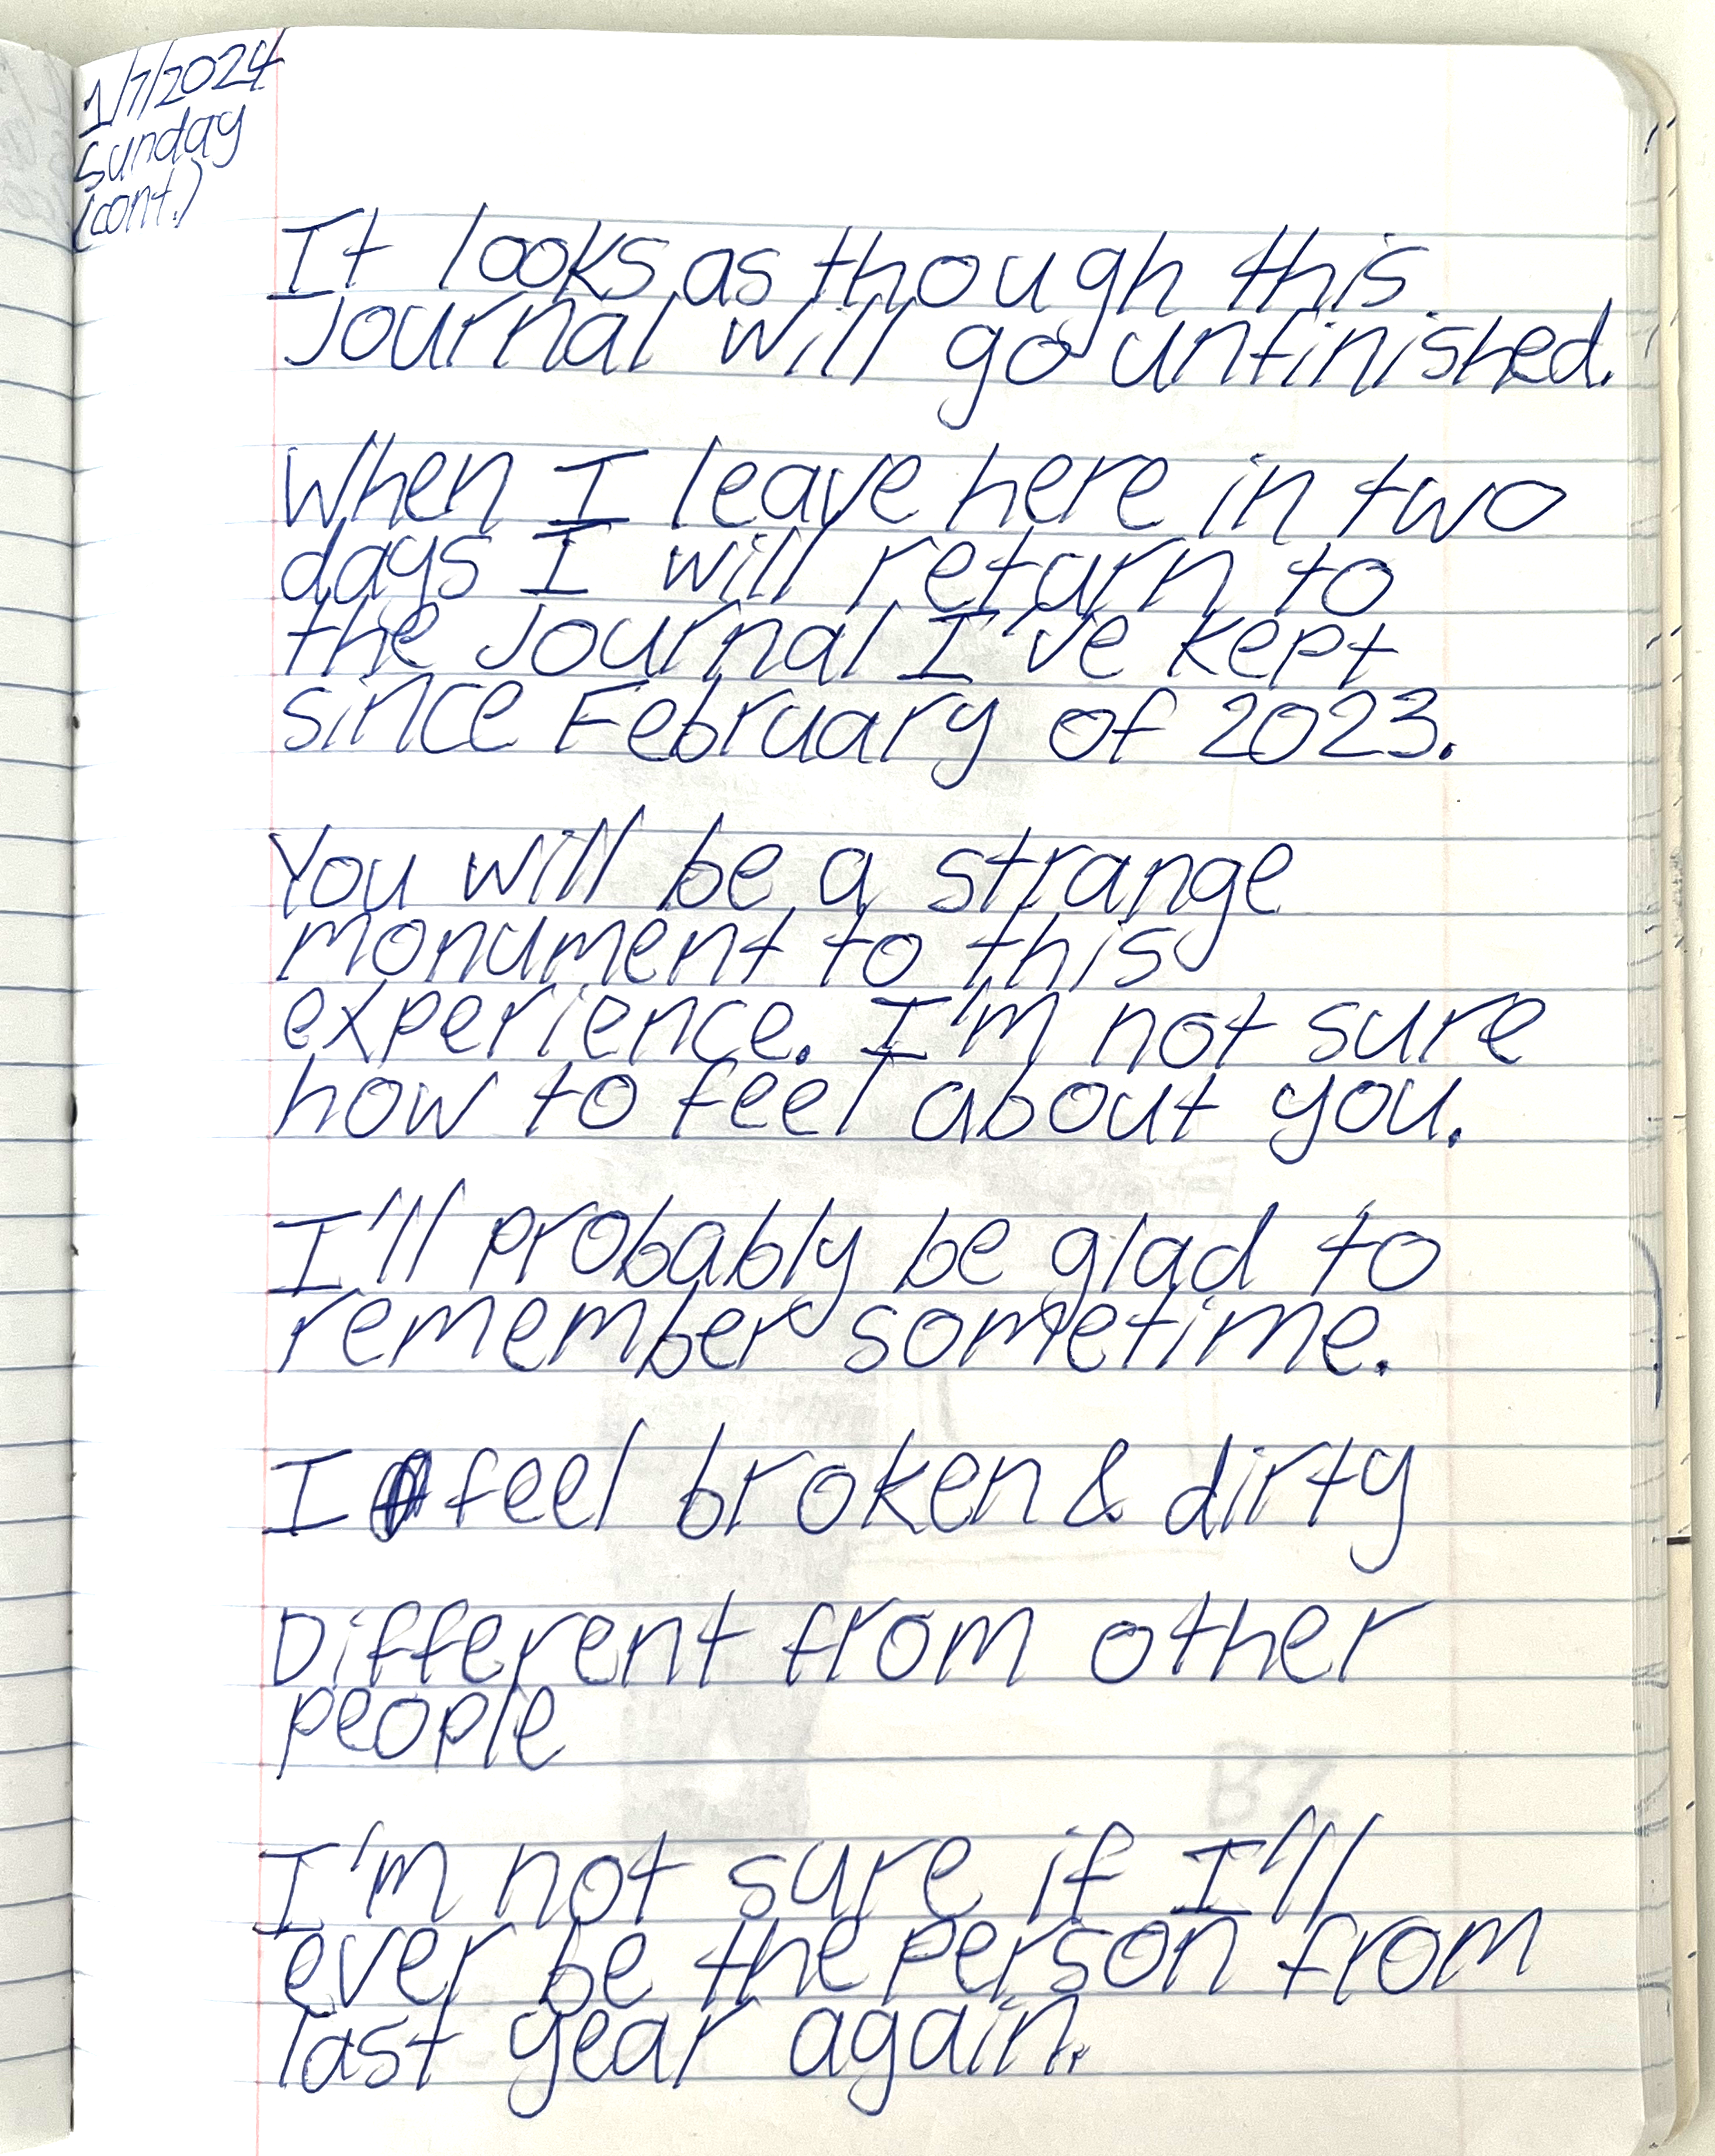 1/7/2024
Sunday
(cont.)
It looks as though this
Journal will go unfinished.
When I leave here in two
days I will return to
the Journal I've kept
since February of 2023.
You will be a strange
monument to this
experience. I'm not sure
how to feel about you.
I'll probably be glad to
remember sometime.
I feel broken & dirty
Different from other
people
I'm not sure if I'll
ever be the person from
last year again.